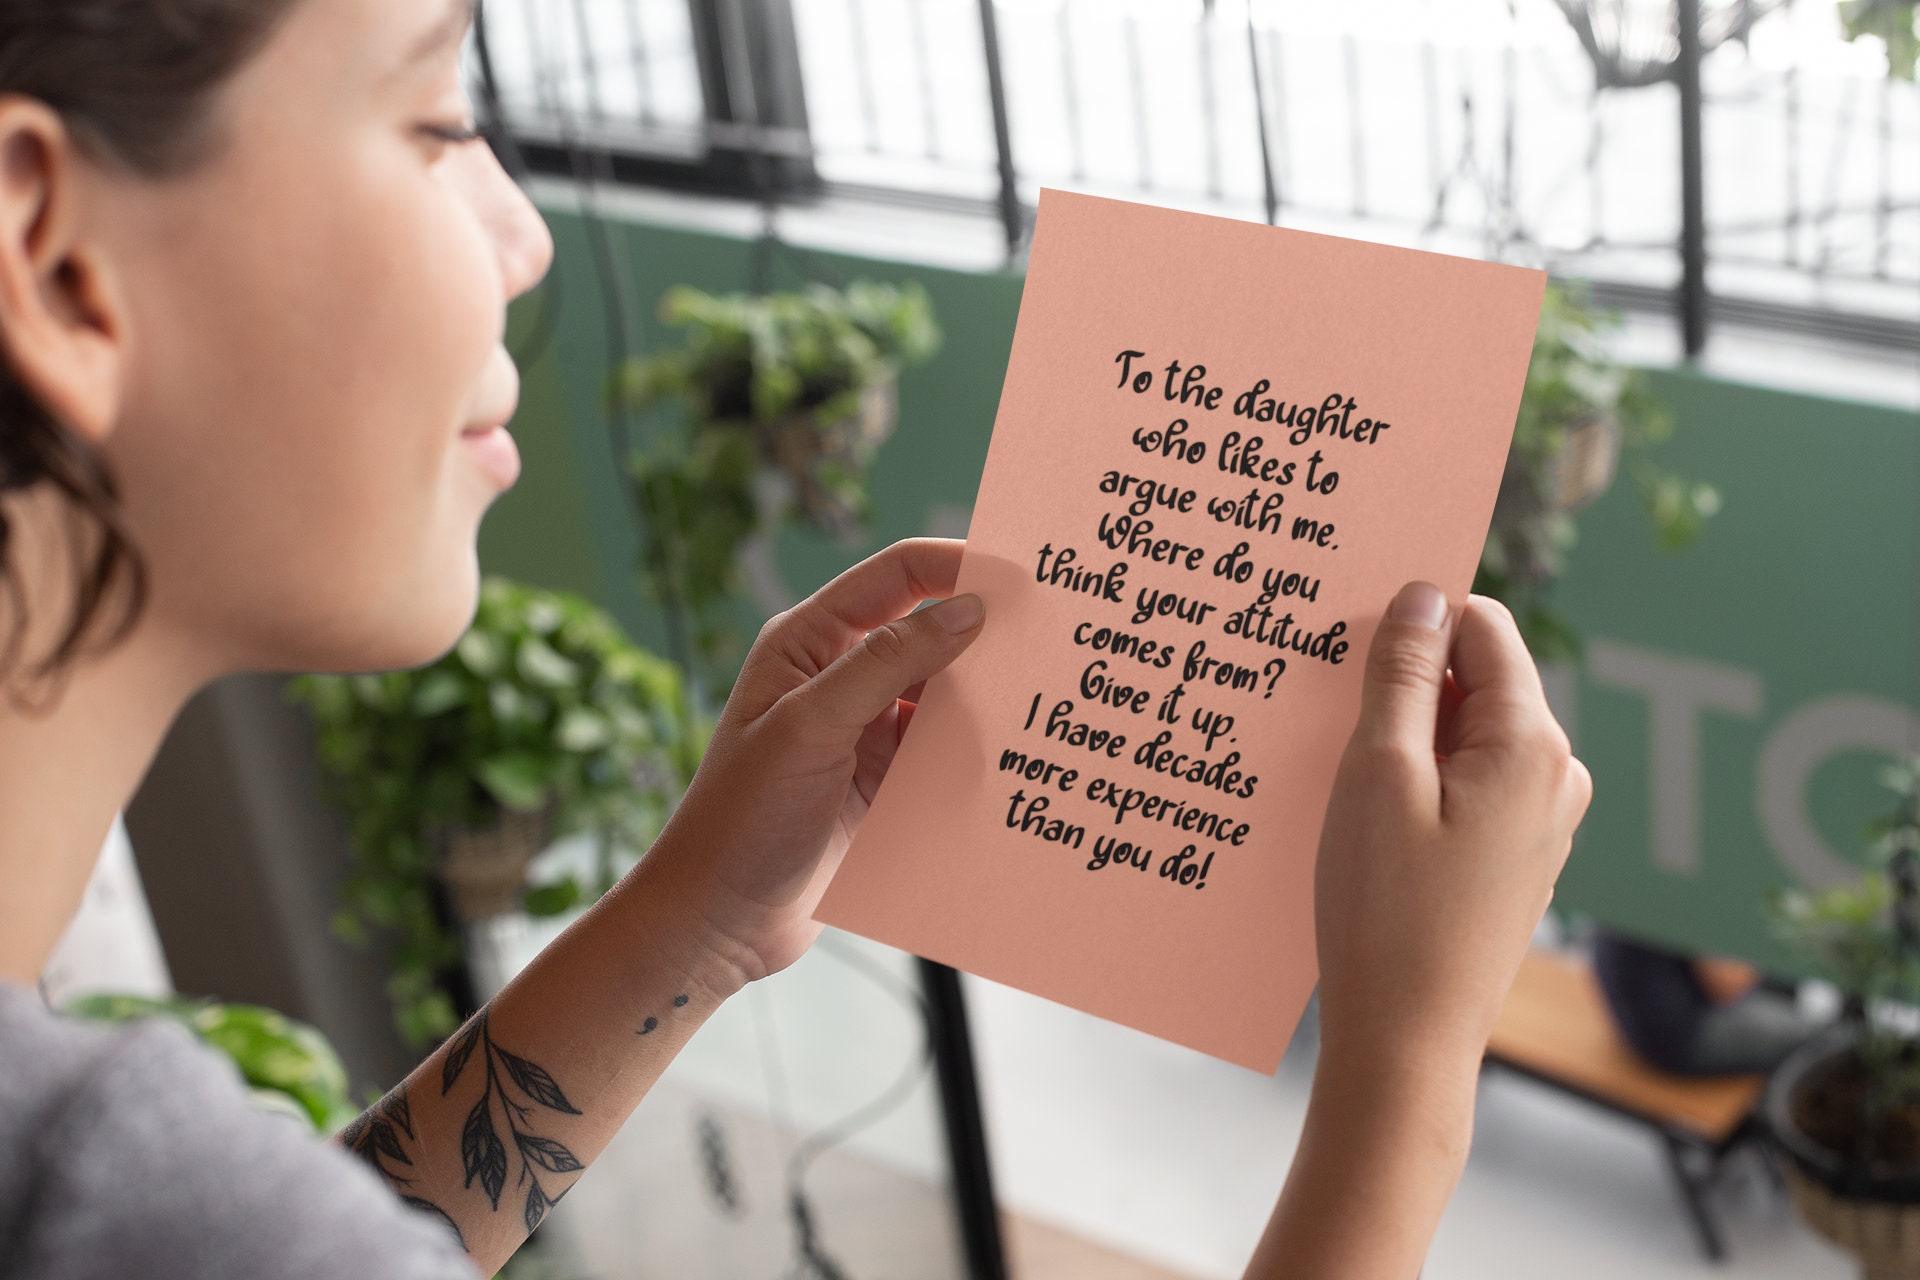 To the daughter
who likes to
argue with me.
Where do you
think your attitude
comes from?
Give it up.
I have decades
more experience
than you do!